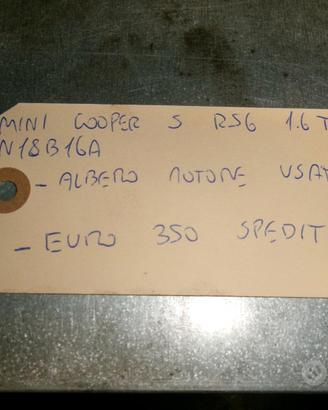 MINI COOPER S R56 1.6 T
N18B16A
- ALBERO MOTORE USAT
- EURO 350 SPEDIT